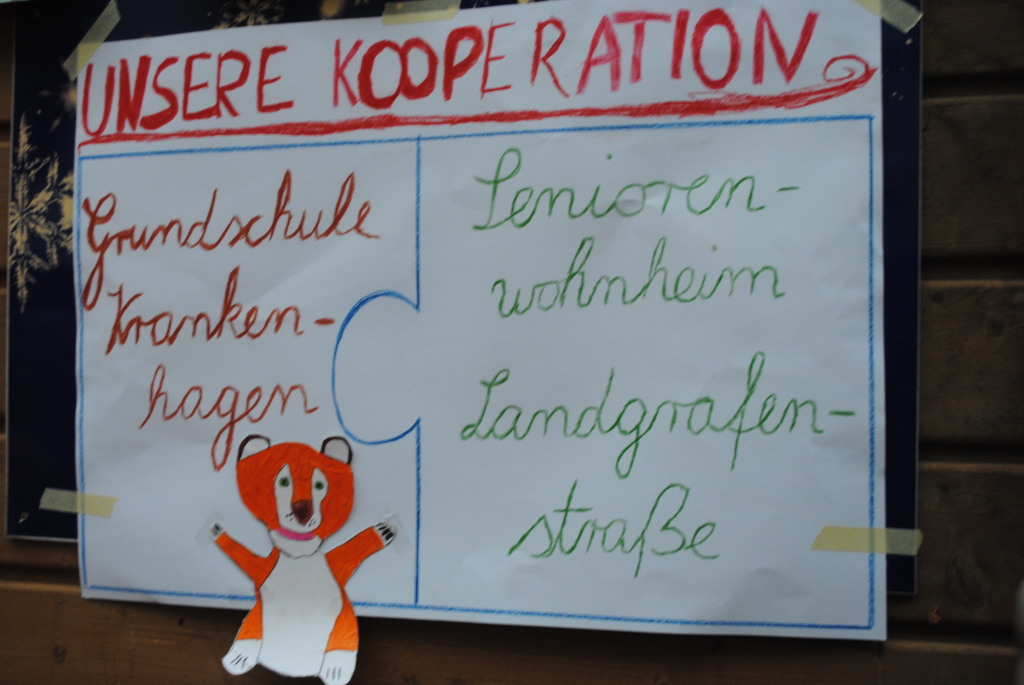 UNSERE KOOPERATION
Grundschule
Kranken-
hagen
Senioren-
wohnheim
Landgrafen-
straße